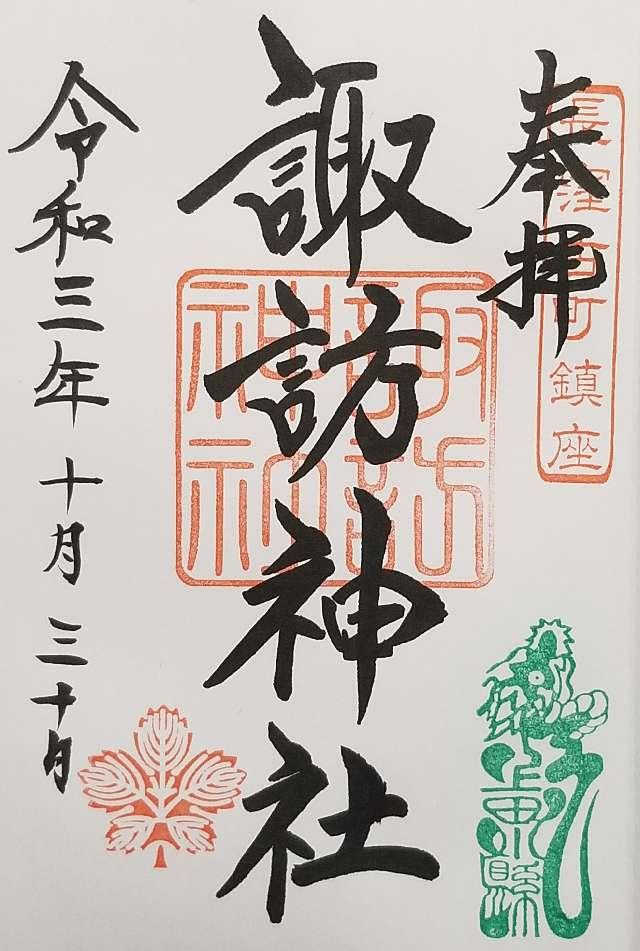 奉拝
長窪古町鎮座
諏訪神社
諏訪神社
令和三年十月三十日